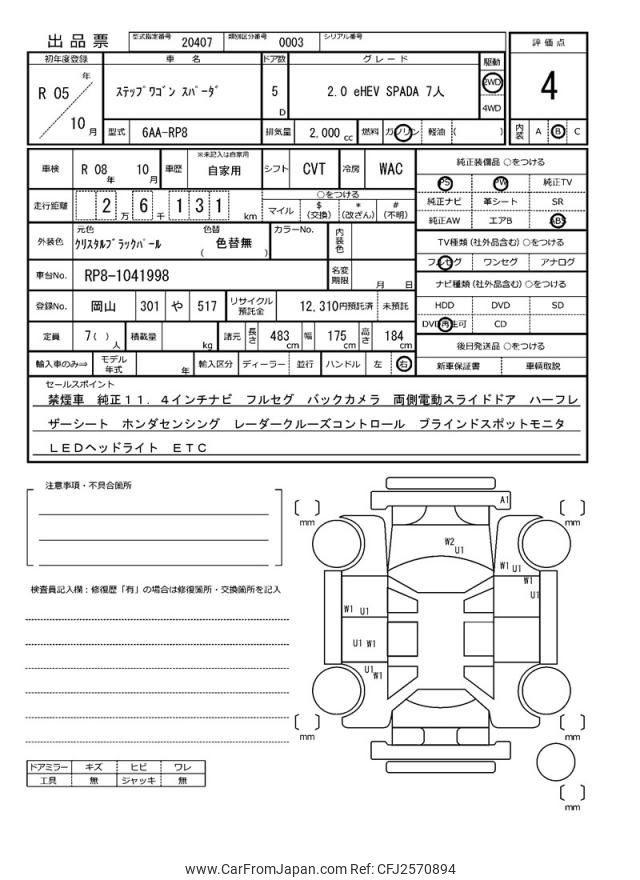 出品票 型式指定番号 20407 類別区分番号 0003 シリアル番号
評価点
4
内装 A B C
初年度登録 車名 ドア数 グレード 駆動
R 05 年 10 月
ステップワゴン スパーダ 5 D 2.0 eHEV SPADA 7人 2WD 4WD
型式 6AA-RP8 排気量 2,000 cc 燃料 ガソリン 軽油 ( )
車検 R 08 年 10 月 車歴 ※未記入は自家用 自家用 シフト CVT 冷房 WAC
走行距離 2 万 6 千 1 3 1 km
○をつける
マイル $ (交換) * (改ざん) # (不明)
外装色 元色 クリスタルブラックパール 色替 ( 色替無 ) カラーNo. 内装色
車台No. RP8-1041998 名変期限 月 日
登録No. 岡山 301 や 517 リサイクル預託金 12,310円預託済 未預託
定員 7 ( ) 人 積載量 kg 諸元 長さ 483 cm 幅 175 cm 高さ 184 cm
輸入車のみ⇒ モデル年式 年 輸入区分 ディーラー 並行 ハンドル 左 右
純正装備品 ○をつける
PS PW 純正TV
純正ナビ 革シート SR
純正AW エアB ABS
TV種類 (社外品含む) ○をつける
フルセグ ワンセグ アナログ
ナビ種類 (社外品含む) ○をつける
HDD DVD SD
DVD再生可 CD
後日発送品 ○をつける
新車保証書 車輌取説
セールスポイント
禁煙車 純正11.4インチナビ フルセグ バックカメラ 両側電動スライドドア ハーフレ
ザーシート ホンダセンシング レーダークルーズコントロール ブラインドスポットモニタ
LEDヘッドライト ETC
注意事項・不具合箇所
検査員記入欄：修復歴「有」の場合は修復箇所・交換箇所を記入
ドアミラー キズ ヒビ ワレ
工具 無 ジャッキ 無
A1
mm mm
W2 U1
W1 U1
W1 U1
W1 U1
U1 W1
U1 W1
mm mm
mm
www.CarFromJapan.com Ref: CFJ2570894